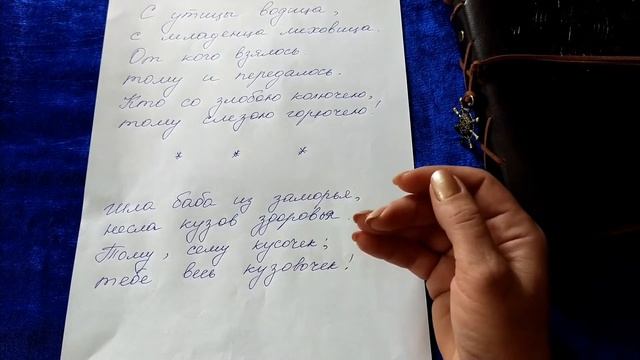 С утицы водица,
с младенца лиховица.
От кого взялось
тому и передалось.
Кто со злобою колючею,
тому слезою горючею!
* * *
Шла баба из заморья,
несла кузов здоровья.
Тому, сему кусочек;
тебе весь кузовочек!